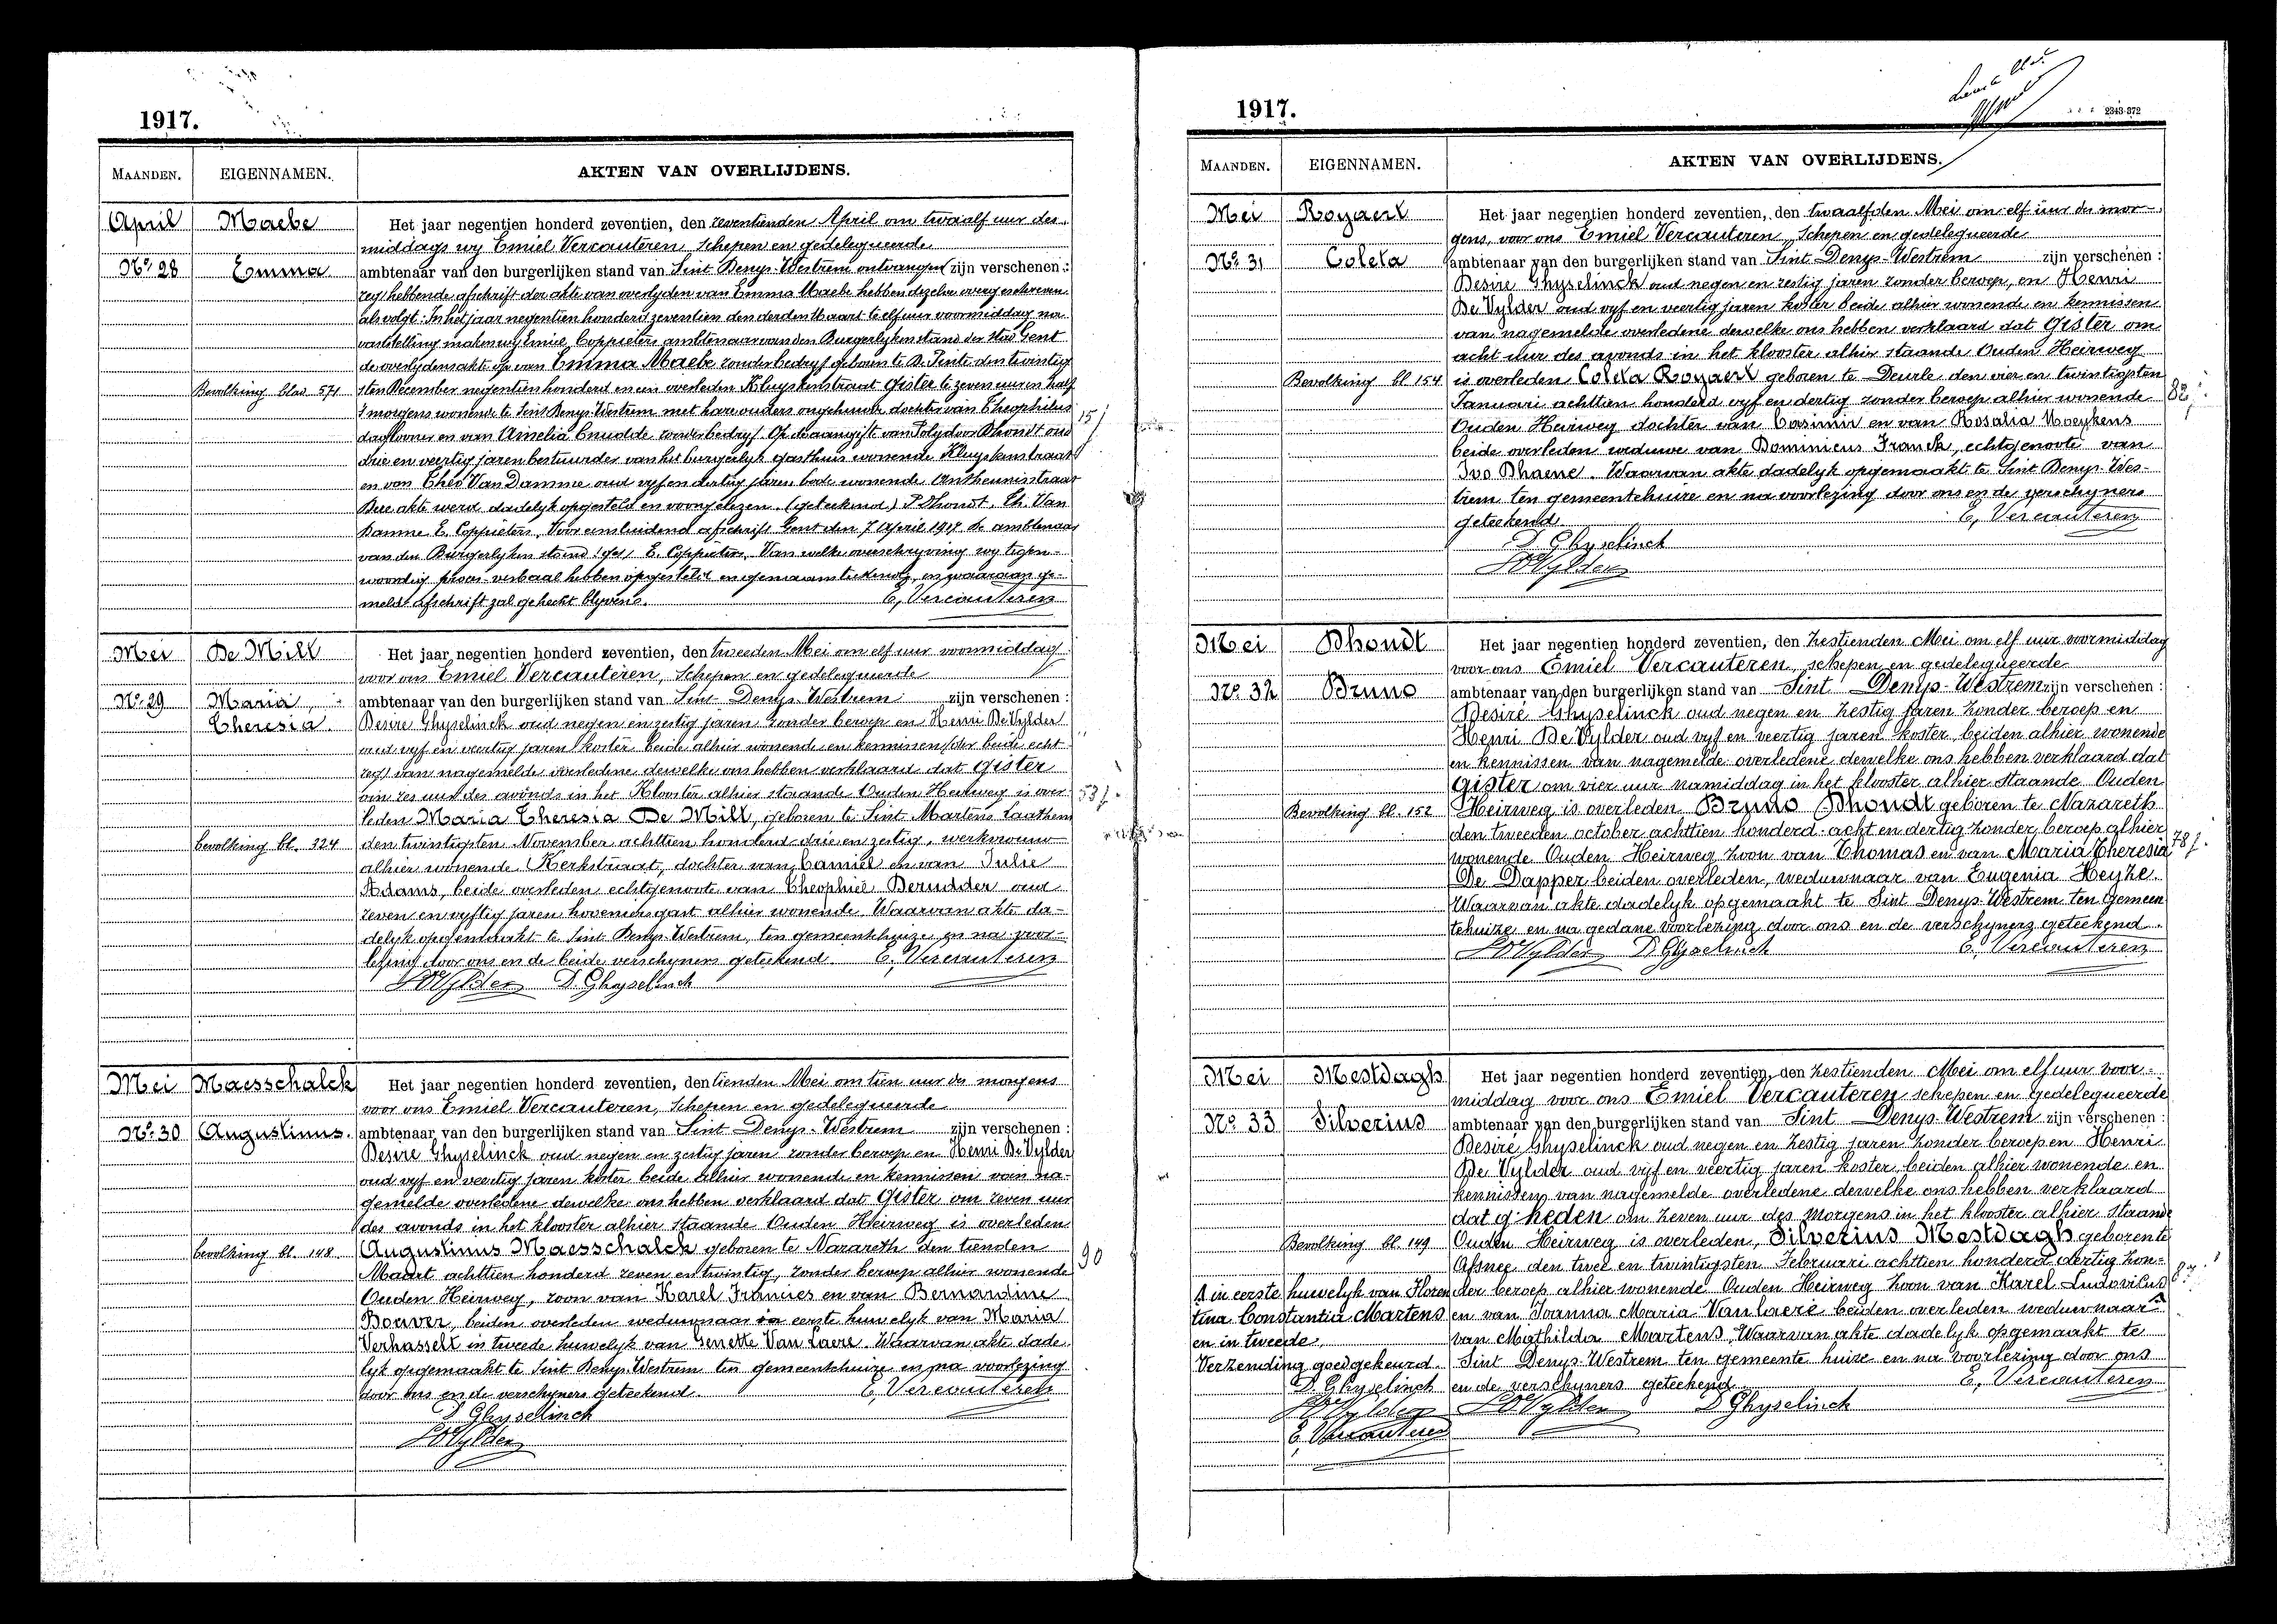 1917.
MAANDEN. EIGENNAMEN. AKTEN VAN OVERLIJDENS.
April Maebe Het jaar negentien honderd zeventien, den zeventienden April om twaalf uur des
middags wy Emiel Vercauteren, Schepen en gedelegueerde
No. 28 Emma ambtenaar van den burgerlijken stand van Sint Denys-Westrem ontvangen zijn verschenen :
zegd hebbende afschrift der akte van overlyden van Emma Maebe hebben dezelve overgeschreven
als volgt : In het jaar negentien honderd zeventien den derden Maart te elf uur voormiddag na
vaststelling maken wy Emile Coppieters ambtenaar van den Burgerlyken stand der stad Gent
de overlydensakte op van Emma Maebe zonder bedryf geboren te D. Pinte den twintig
Bevolking blad 571 sten December negentien honderd en een overleden Kluyskenstraat Gister te zeven uren half
's morgens wonende te Sint Denys Westrem met hare ouders ongehuwde dochter van Theophilus
15 j
daglooner en van Amelia Cnudde zonder bedryf. Op de aangifte van Polydoor Dhondt oud
drie en veertig jaren bestuurder van het burgerlyk gasthuis wonende Kluyskenstraat
en van Theo Van Damme oud vyf en dertig jaren bode wonende Antheunisstraat
Dese akte werd dadelyk opgesteld en voorgelezen. (geteekend) P. Dhondt, Th. Van
Damme E. Coppieters. Voor eensluidend afschrift Gent den 7 April 1917 de ambtenaar
van den Burgerlyken stand (get) E. Coppieters. Van welke overschryving wy tegen-
woordig proces-verbaal hebben opgesteld en genaamteekend, en waaraan ge-
meld afschrift zal gehecht blyven. E, Vercauteren
Mei De Mill Het jaar negentien honderd zeventien, den tweeden Mei om elf uur voormiddag
voor ons Emiel Vercauteren, Schepen en gedelegueerde
No. 29 Maria, ambtenaar van den burgerlijken stand van Sint-Denys-Westrem zijn verschenen :
Theresia. Desire Ghyselinck oud negen en zestig jaren zonder beroep en Henri De Vylder
oud vyf en veertig jaren koster beide alhier wonende en kennissen der beide echt
van nagemelde overledene dewelke ons hebben verklaard dat Gister
om zes uur des avonds in het Klooster alhier staande Ouden Heirweg is over
53 j.
leden Maria Theresia De Mill, geboren te Sint-Martens Laathem
bevolking bl. 324 den twintigsten November achttien honderd drie en zestig, werkvrouw
alhier wonende Kerkstraat, dochter van Camiel en van Julie
Adams, beide overleden echtgenoote van Theophiel Berudder oud
zeven en vyftig jaren hoveniersgast alhier wonende. Waarvan akte da-
delyk opgemaakt te Sint Denys-Westrem, ten gemeentehuize en na voor-
lezing door ons en de beide verschyners geteekend. E, Vercauteren
HDVylder D. Ghyselinck
Mei Maesschalck Het jaar negentien honderd zeventien, den tienden Mei om tien uur des morgens
voor ons Emiel Vercauteren, Schepen en gedelegueerde
No. 30 Augustinus. ambtenaar van den burgerlijken stand van Sint-Denys-Westrem zijn verschenen :
Desire Ghyselinck oud negen en zestig jaren zonder beroep en Henri De Vylder
oud vyf en veertig jaren koster beide alhier wonende en kennissen van na-
gemelde overledene dewelke ons hebben verklaard dat Gister om zeven uur
des avonds in het klooster alhier staande Ouden Heirweg is overleden
bevolking bl. 148 Augustinus Maesschalck geboren te Nazareth den tienden
90
Maart achttien honderd zeven en twintig, zonder beroep alhier wonende
Ouden Heirweg, zoon van Karel Francies en van Bernardine
Bouver, beiden overleden weduwnaar in eerste huwelyk van Maria
Verhasselt in tweede huwelyk van Genette Van Laere. Waarvan akte dade
lyk opgemaakt te Sint Denys-Westrem ten gemeentehuize en na voorlezing
door ons en de verschyners geteekend. E, Vercauteren
D Ghyselinck
HDVylder
1917.
2343-372
MAANDEN. EIGENNAMEN. AKTEN VAN OVERLIJDENS.
Mei Royaert Het jaar negentien honderd zeventien, den twaalfden Mei om elf uur des mor-
gens, voor ons Emiel Vercauteren, Schepen en gedelegueerde
No. 31 Coleta ambtenaar van den burgerlijken stand van Sint-Denys-Westrem zijn verschenen :
Desiré Ghyselinck oud negen en zestig jaren zonder beroep, en Henri
De Vylder oud vyf en veertig jaren koster beide alhier wonende en kennissen
van nagemelde overledene dewelke ons hebben verklaard dat Gister om
acht uur des avonds in het klooster alhier staande Ouden Heirweg
Bevolking bl 154 is overleden Coleta Royaert geboren te Deurle den vier en twintigsten
82 j.
Januari achttien honderd vyf en dertig zonder beroep alhier wonende
Ouden Heirweg dochter van Casimir en van Rosalia Moeykens
beide overleden weduwe van Dominicus Franck, echtgenoote van
Ivo Dhaene. Waarvan akte dadelyk opgemaakt te Sint Denys-Wes-
trem ten gemeentehuize en na voorlezing door ons en de verschyners
geteekend E, Vercauteren
D Ghyselinck
HDVylder
Mei Dhondt Het jaar negentien honderd zeventien, den zestienden Mei om elf uur voormiddag
voor ons Emiel Vercauteren, schepen en gedelegueerde
No. 32 Bruno ambtenaar van den burgerlijken stand van Sint Denys-Westrem zijn verschenen :
Desiré Ghyselinck oud negen en zestig jaren zonder beroep en
Henri De Vylder oud vyf en veertig jaren koster, beiden alhier wonende
en kennissen van nagemelde overledene dewelke ons hebben verklaard dat
gister om vier uur namiddag in het klooster alhier staande Ouden
Bevolking bl. 152 Heirweg is overleden Bruno Dhondt geboren te Nazareth
den tweeden october achttien honderd acht en dertig zonder beroep alhier
78 j.
wonende Ouden Heirweg zoon van Thomas en van Maria Theresia
De Dapper beiden overleden, weduwnaar van Eugenia Heyze.
Waarvan akte dadelyk opgemaakt te Sint Denys-Westrem ten gemeen
tehuize en na gedane voorlezing door ons en de verschyners geteekend.
HDVylder D. Ghyselinck E, Vercauteren
Mei Mestdagh Het jaar negentien honderd zeventien, den zestienden Mei om elf uur voor-
middag voor ons Emiel Vercauteren schepen en gedelegueerde
No. 33 Silverius ambtenaar van den burgerlijken stand van Sint Denys-Westrem zijn verschenen :
Desiré Ghyselinck oud negen en zestig jaren zonder beroep en Henri
De Vylder oud vyf en veertig jaren koster, beiden alhier wonende en
kennissen van nagemelde overledene dewelke ons hebben verklaard
dat heden om zeven uur des morgens in het klooster alhier staande
Bevolking bl 149 Ouden Heirweg is overleden, Silverius Mestdagh geboren te
Afsnee den twee en twintigsten Februari achttien honderd dertig zon-
87 j
der beroep alhier wonende Ouden Heirweg zoon van Karel Ludovicus
en van Joanna Maria Vanlaere beiden overleden weduwnaar
van Mathilda Martens, Waarvan akte dadelyk opgemaakt te
Sint Denys-Westrem ten gemeente huize en na voorlezing door ons
en de verschyners geteekend E, Vercauteren
HDVylder D Ghyselinck
in eerste huwelyk van Floren
tina Constantia Martens
en in tweede,
Verzending goedgekeurd.
D. Ghyselinck
HDVylder
E, Vercauteren